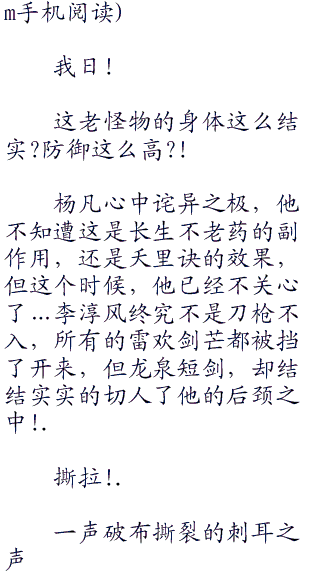 m手机阅读)
我日!
这老怪物的身体这么结
实?防御这么高?!
杨凡心中诧异之极，他
不知遭这是长生不老药的副
作用，还是天里诀的效果，
但这个时候，他已经不关心
了…李淳风终究不是刀枪不
入，所有的雷欢剑芒都被挡
了开来，但龙泉短剑，却结
结实实的切人了他的后颈之
中!.
撕拉!.
一声破布撕裂的刺耳之
声